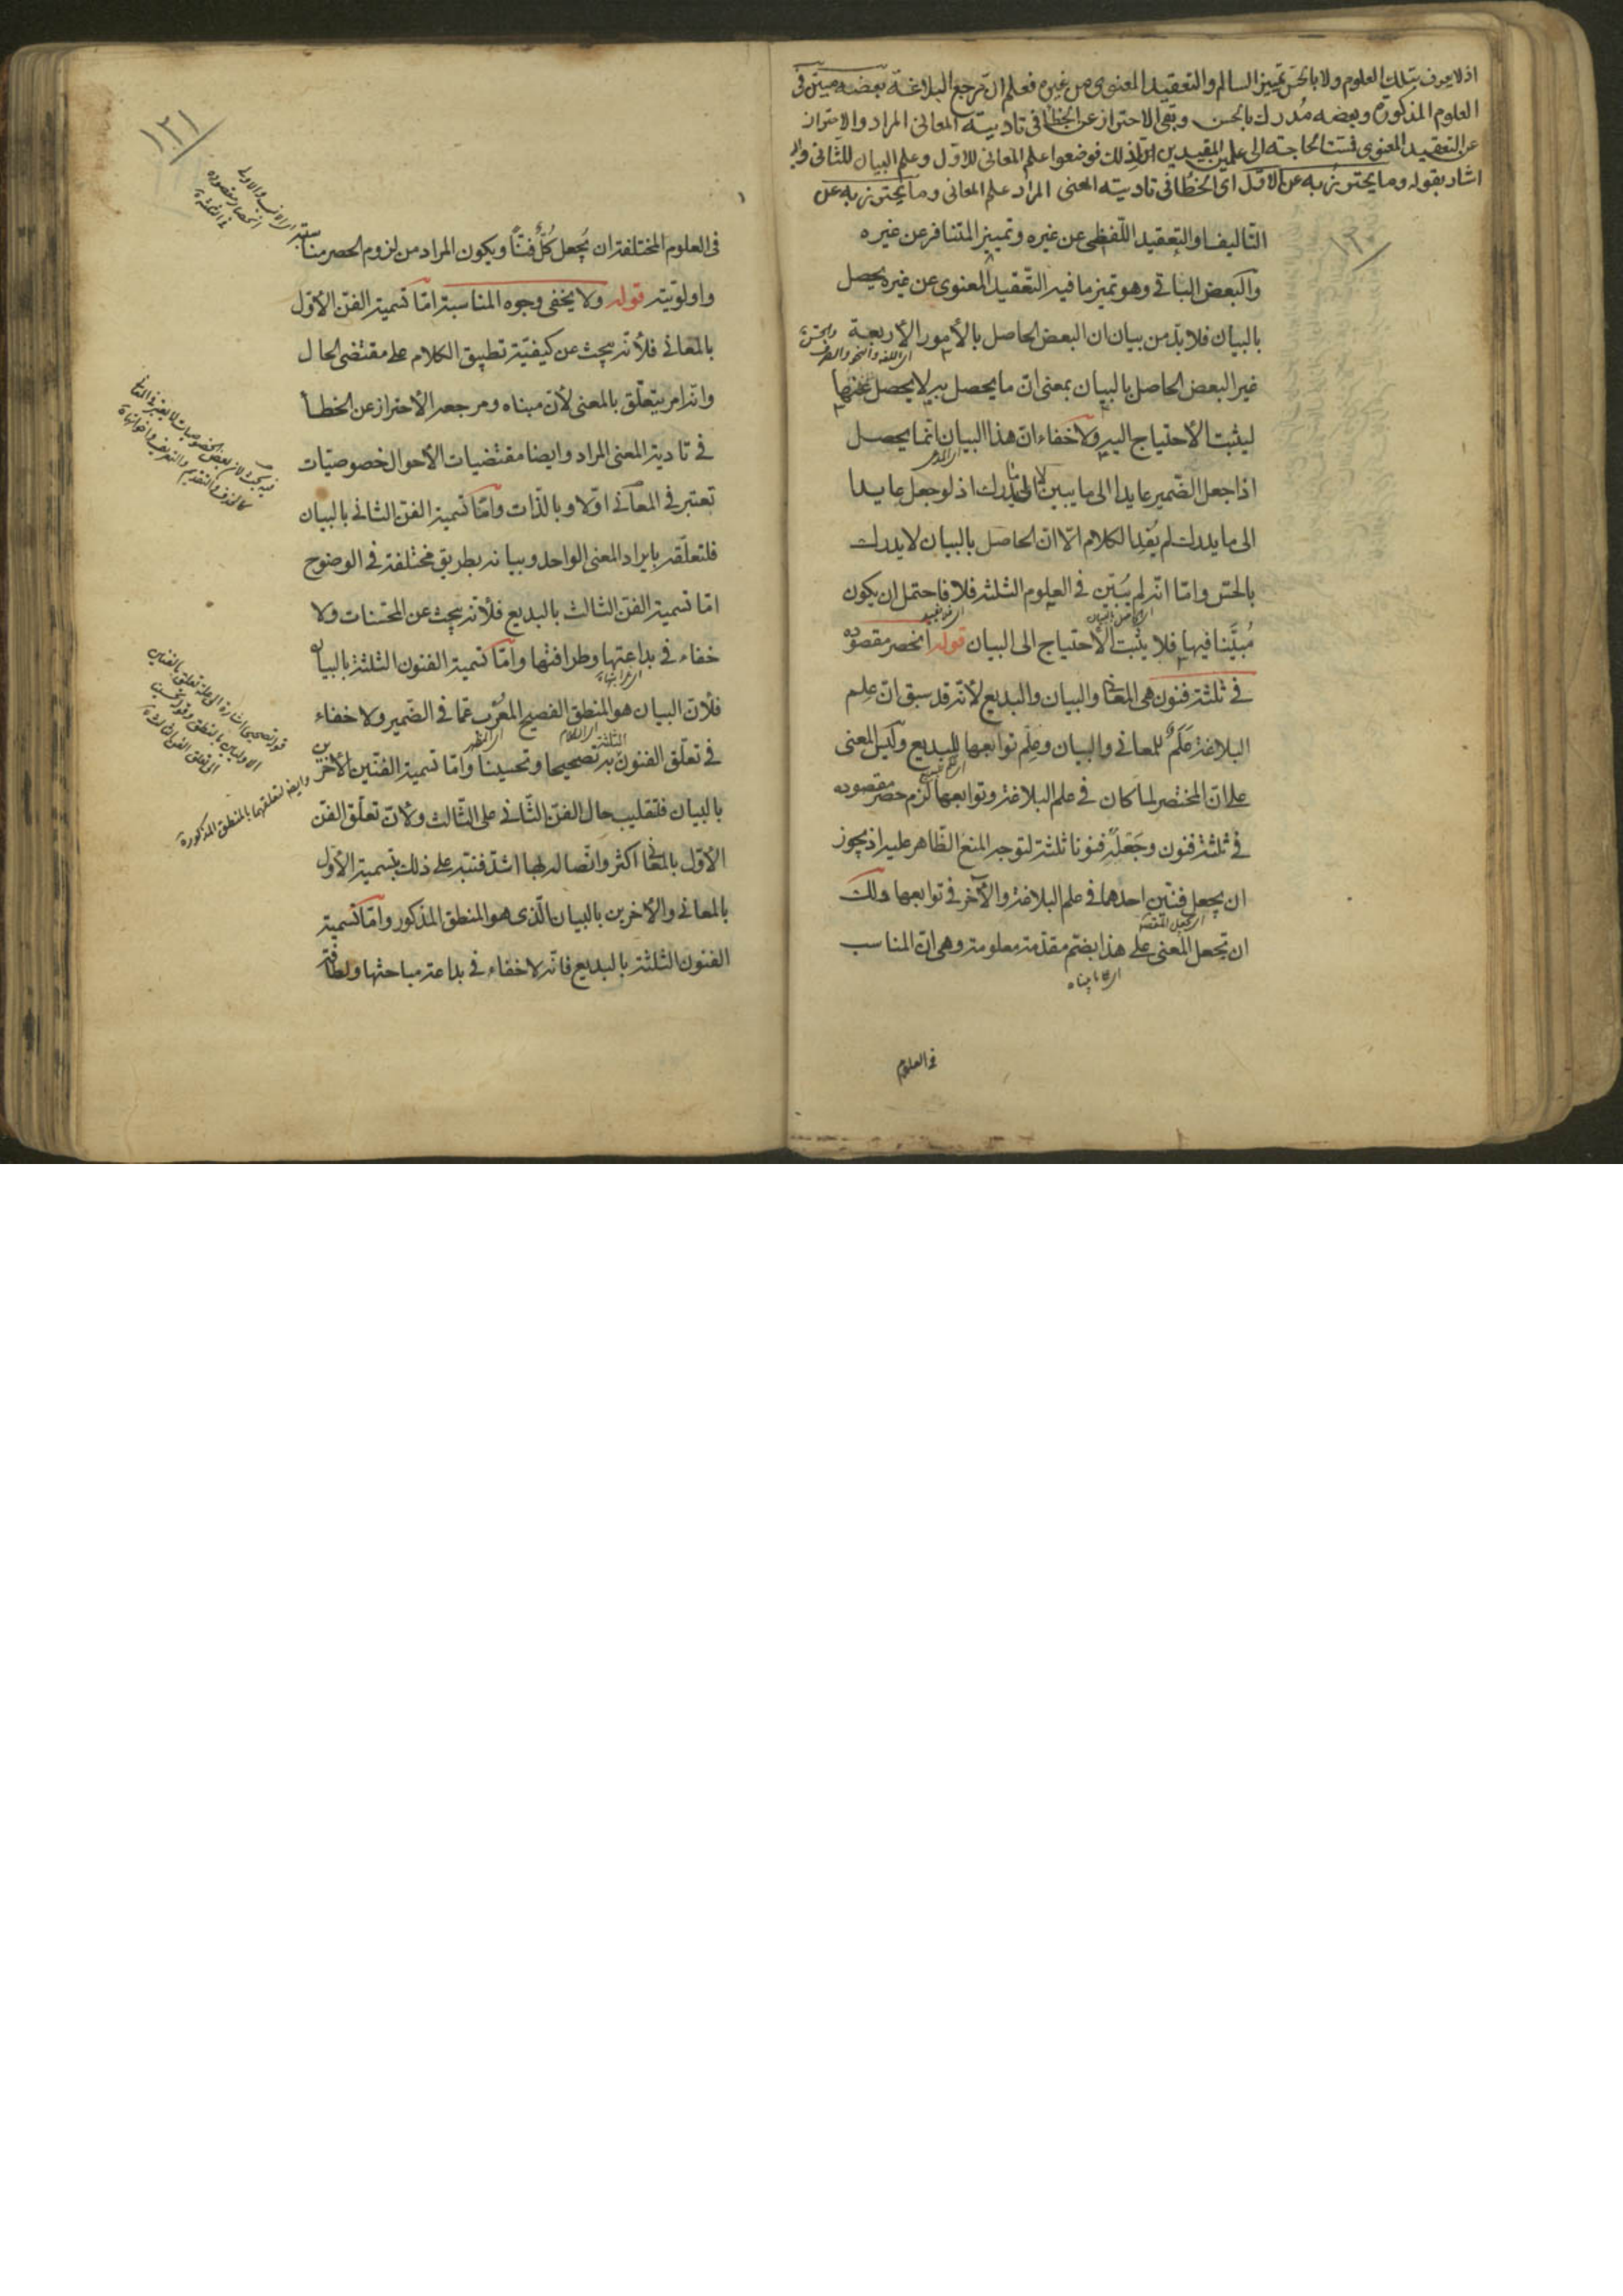 اذ لا يعرف بتلك العلوم ولا بالحس تمييز السالم والتعقيد المعنوى من غيره فعلم ان مرجع البلاغة بعضه مبين فى
العلوم المذكورة وبعضه مُدرك بالحس وبقى الاحتراز عن الخطأ فى تادية المعانى المراد والاحتراز
عن التعقيد المعنوى فمست الحاجة الى علمين المفيدين لذلك فوضعوا علم المعانى للاول وعلم البيان للثانى وال
اشار بقوله وما يحترز به عن الاول اى الخطأ فى تادية المعنى المراد علم المعانى وما يحترز به عن
التاليف والتعقيد اللّفظى عن غيره وتمييز المتنافر عن غيره
والبعض الباقى وهو تميز ما فيه التّعقيد المعنوى عن غيره يحصل
بالبيان فلابدّ من بيان ان البعض الحاصل بالأمور الأربعة
اى اللغة والنحو والصرف والحس
غير البعض الحاصل بالبيان بمعنى انّ ما يحصل به لا يحصل بغيرها
ليثبت الأحتياج اليه ولا خفاء انّ هذا البيان انّما يحصل
اذا جعل الضّمير عايدا الى ما يبين لا الى ما يدرك اذ لو جعل عايدا
الى ما يدرك لم يُفِد الكلام الّا انّ الحاصل بالبيان لا يدرك
بالحسّ وامّا انّه لم يُبَيّن فى العلوم الثلثة فلا فاحتمل ان يكون
مُبيَّنا فيها فلا يثبت الأحتياج الى البيان قوله انحصر مقصوده
فى ثلثة فنون هى المعانى والبيان والبديع لأنّه قد سبق انّ عِلم
البلاغة عَلَمٌ للمعانى والبيان وعِلم توابعها للبديع وليس المعنى
على انّ المختصر لما كان فى علم البلاغة وتوابعها لزم حصر مقصوده
فى ثلثة فنون وجَعْلُه فنونا ثلثة لتوجه المنع الظّاهر عليه اذ يجوز
ان يجعل فنّين احدهما فى علم البلاغة والآخر فى توابعها ولك
ان تجعل المعنى على هذا بضمّ مقدّمة معلومة وهى انّ المناسب
فى العلوم
١٢٠
١٢١
فى العلوم المختلفة ان يُجعل كُلٌّ فنًّا ويكون المراد من لزوم الحصر مناسبته
واولويّته قوله ولا يخفى وجوه المناسبة امّا تسمية الفنّ الأوّل
بالمعانى فلأنّه يبحث عن كيفيّة تطبيق الكلام على مقتضى الحال
وانّه امر يتعلّق بالمعنى لأنّ مبناه ومرجعه الأحتراز عن الخطأ
فى تادية المعنى المراد وايضا مقتضيات الأحوال خصوصيّات
تعتبر فى المعانى اوّلا وبالذّات وامّا تسمية الفنّ الثانى بالبيان
فلتعلّقه بايراد المعنى الواحد وبيانه بطريق مختلفة فى الوضوح
امّا تسمية الفنّ الثالث بالبديع فلأنّه يبحث عن المحسّنات ولا
خفاء فى بداعتها وظرافتها وامّا تسمية الفنون الثلثة بالبيان
فلأنّ البيان هو المنطق الفصيح المُعْرِب عمّا فى الضّمير ولا خفاء
فى تعلّق الفنون الثلثة به تصحيحا وتحسينا وامّا تسمية الفنّين الأخرين
بالبيان فلتغليب حال الفنّ الثّانى على الثّالث ولأنّ تعلّق الفنّ
الأوّل بالمعانى اكثر واتّصاله بها اشدّ فنبّه على ذلك بتسمية الأوّل
بالمعانى والأخرين بالبيان الّذى هو المنطق المذكور وامّا تسمية
الفنون الثلثة بالبديع فانّه لا خفاء فى بداعة مباحثها ولطافة